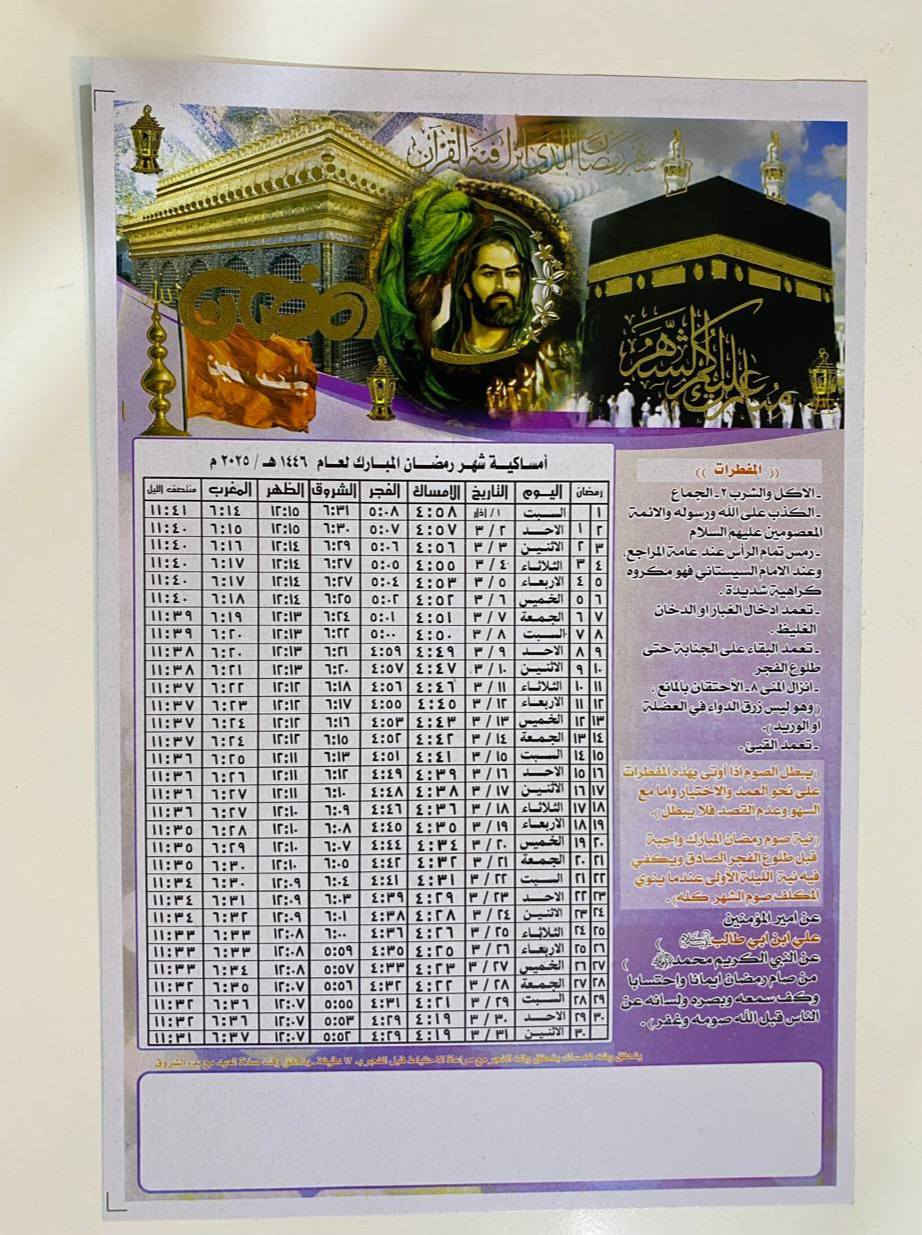 شهر رمضان الذي انزل فيه القرآن
رمضان
مبارك عليكم الشهر
أمساكية شهر رمضان المبارك لعام ١٤٤٦ هـ / ٢٠٢٥ م
رمضان اليوم التاريخ الامساك الفجر الشروق الظهر المغرب منتصف الليل
١ السبت ١ / آذار ٤:٥٨ ٥:٠٨ ٦:٣١ ١٢:١٥ ٦:١٤ ١١:٤١
٢ ١ الاحد ٢ / ٣ ٤:٥٧ ٥:٠٧ ٦:٣٠ ١٢:١٥ ٦:١٥ ١١:٤٠
٣ ٢ الاثنين ٣ / ٣ ٤:٥٦ ٥:٠٦ ٦:٢٩ ١٢:١٤ ٦:١٦ ١١:٤٠
٤ ٣ الثلاثاء ٤ / ٣ ٤:٥٥ ٥:٠٥ ٦:٢٧ ١٢:١٤ ٦:١٧ ١١:٤٠
٥ ٤ الاربعاء ٥ / ٣ ٤:٥٣ ٥:٠٤ ٦:٢٧ ١٢:١٤ ٦:١٧ ١١:٤٠
٦ ٥ الخميس ٦ / ٣ ٤:٥٢ ٥:٠٢ ٦:٢٥ ١٢:١٤ ٦:١٨ ١١:٤٠
٧ ٦ الجمعة ٧ / ٣ ٤:٥١ ٥:٠١ ٦:٢٤ ١٢:١٣ ٦:١٩ ١١:٣٩
٨ ٧ السبت ٨ / ٣ ٤:٥٠ ٥:٠٠ ٦:٢٢ ١٢:١٣ ٦:٢٠ ١١:٣٩
٩ ٨ الاحد ٩ / ٣ ٤:٤٩ ٤:٥٩ ٦:٢١ ١٢:١٣ ٦:٢٠ ١١:٣٨
١٠ ٩ الاثنين ١٠ / ٣ ٤:٤٧ ٤:٥٧ ٦:٢٠ ١٢:١٣ ٦:٢١ ١١:٣٨
١١ ١٠ الثلاثاء ١١ / ٣ ٤:٤٦ ٤:٥٦ ٦:١٨ ١٢:١٢ ٦:٢٢ ١١:٣٧
١٢ ١١ الاربعاء ١٢ / ٣ ٤:٤٥ ٤:٥٥ ٦:١٧ ١٢:١٢ ٦:٢٣ ١١:٣٧
١٣ ١٢ الخميس ١٣ / ٣ ٤:٤٣ ٤:٥٣ ٦:١٦ ١٢:١٢ ٦:٢٤ ١١:٣٧
١٤ ١٣ الجمعة ١٤ / ٣ ٤:٤٢ ٤:٥٢ ٦:١٥ ١٢:١٢ ٦:٢٤ ١١:٣٧
١٥ ١٤ السبت ١٥ / ٣ ٤:٤١ ٤:٥١ ٦:١٣ ١٢:١١ ٦:٢٥ ١١:٣٦
١٦ ١٥ الاحد ١٦ / ٣ ٤:٣٩ ٤:٤٩ ٦:١٢ ١٢:١١ ٦:٢٦ ١١:٣٦
١٧ ١٦ الاثنين ١٧ / ٣ ٤:٣٨ ٤:٤٨ ٦:١٠ ١٢:١١ ٦:٢٧ ١١:٣٦
١٨ ١٧ الثلاثاء ١٨ / ٣ ٤:٣٦ ٤:٤٦ ٦:٠٩ ١٢:١٠ ٦:٢٧ ١١:٣٦
١٩ ١٨ الاربعاء ١٩ / ٣ ٤:٣٥ ٤:٤٥ ٦:٠٨ ١٢:١٠ ٦:٢٨ ١١:٣٥
٢٠ ١٩ الخميس ٢٠ / ٣ ٤:٣٤ ٤:٤٤ ٦:٠٧ ١٢:١٠ ٦:٢٩ ١١:٣٥
٢١ ٢٠ الجمعة ٢١ / ٣ ٤:٣٢ ٤:٤٢ ٦:٠٥ ١٢:١٠ ٦:٣٠ ١١:٣٥
٢٢ ٢١ السبت ٢٢ / ٣ ٤:٣١ ٤:٤١ ٦:٠٤ ١٢:٠٩ ٦:٣٠ ١١:٣٤
٢٣ ٢٢ الاحد ٢٣ / ٣ ٤:٢٩ ٤:٣٩ ٦:٠٣ ١٢:٠٩ ٦:٣١ ١١:٣٤
٢٤ ٢٣ الاثنين ٢٤ / ٣ ٤:٢٨ ٤:٣٨ ٦:٠١ ١٢:٠٩ ٦:٣٢ ١١:٣٤
٢٥ ٢٤ الثلاثاء ٢٥ / ٣ ٤:٢٦ ٤:٣٦ ٦:٠٠ ١٢:٠٨ ٦:٣٣ ١١:٣٣
٢٦ ٢٥ الاربعاء ٢٦ / ٣ ٤:٢٥ ٤:٣٥ ٥:٥٩ ١٢:٠٨ ٦:٣٣ ١١:٣٣
٢٧ ٢٦ الخميس ٢٧ / ٣ ٤:٢٣ ٤:٣٣ ٥:٥٧ ١٢:٠٨ ٦:٣٤ ١١:٣٣
٢٨ ٢٧ الجمعة ٢٨ / ٣ ٤:٢٢ ٤:٣٢ ٥:٥٦ ١٢:٠٧ ٦:٣٥ ١١:٣٢
٢٩ ٢٨ السبت ٢٩ / ٣ ٤:٢١ ٤:٣١ ٥:٥٥ ١٢:٠٧ ٦:٣٦ ١١:٣٢
٣٠ ٢٩ الاحد ٣٠ / ٣ ٤:١٩ ٤:٢٩ ٥:٥٣ ١٢:٠٧ ٦:٣٦ ١١:٣٢
٣٠ الاثنين ٣١ / ٣ ٤:١٩ ٤:٢٩ ٥:٥٢ ١٢:٠٧ ٦:٣٧ ١١:٣١
(( المفطرات ))
ـ الاكل والشرب ٢ـ الجماع
ـ الكذب على الله ورسوله والائمة
المعصومين عليهم السلام
ـ رمس تمام الرأس عند عامة المراجع
وعند الامام السيستاني فهو مكروه
كراهية شديدة .
ـ تعمد ادخال الغبار او الدخان
الغليظ .
ـ تعمد البقاء على الجنابة حتى
طلوع الفجر
ـ انزال المني ٨ـ الأحتقان بالمائع .
( وهو ليس زرق الدواء في العضلة
او الوريد ).
ـ تعمد القيئ .
( يبطل الصوم اذا أوتي بهذه المفطرات
على نحو العمد والاختيار واما مع
السهو وعدم القصد فلا يبطل ).
( نية صوم رمضان المبارك واجبة
قبل طلوع الفجر الصادق ويكفي
فيه نية الليلة الأولى عندما ينوي
المكلف صوم الشهر كله ).
عن امير المؤمنين
علي ابن ابي طالب
عن النبي الكريم محمد
( من صام رمضان ايمانا واحتسابا
وكف سمعه وبصره ولسانه عن
الناس قبل الله صومه وغفر ) .